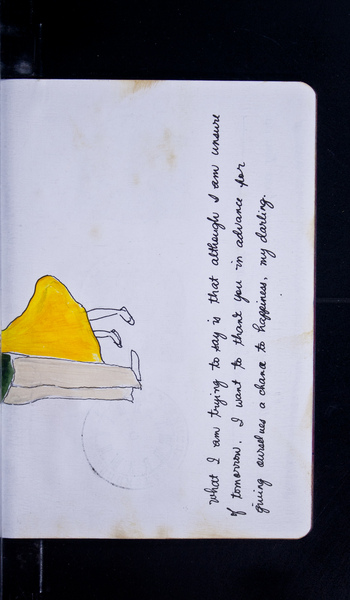 what I am trying to say is that although I am unsure
of tomorrow. I want to thank you in advance for
giving ourselves a chance to happiness, my darling.